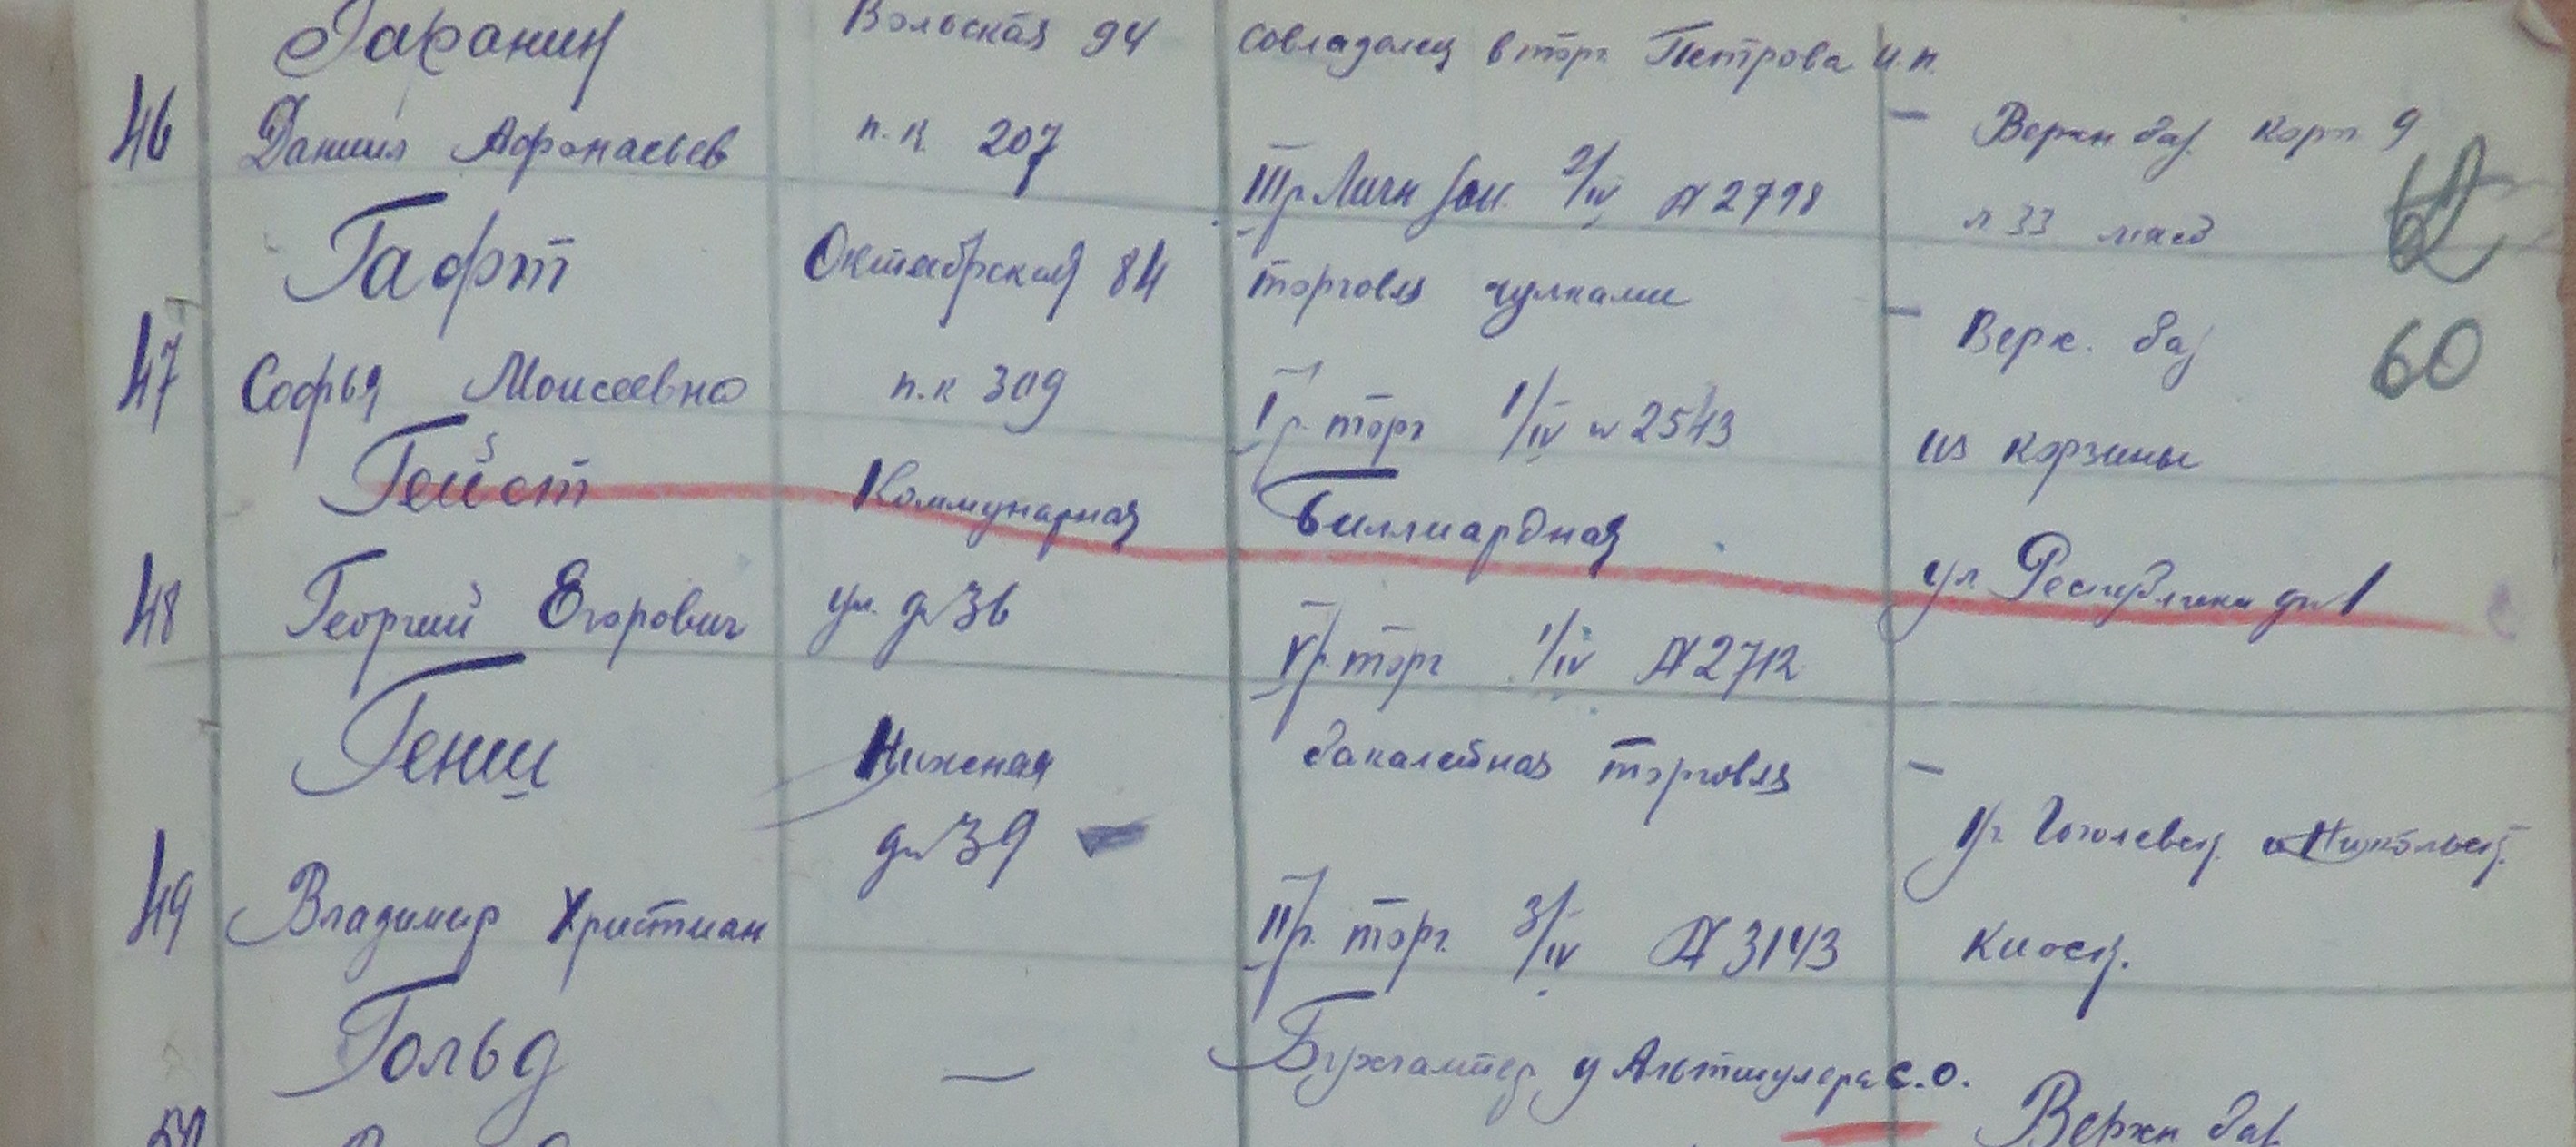 Гаранин Вольская 94 совладелец в торг. Петрова И.П.
46 Даниил Афанасьев п.к. 207 III р Личн зан. 2/IV № 2798 — Верхн баз. корп 9
л 33 мясо 62
Гафт Октябрьская 84 торговля чулками
47 Софья Моисеевна п.к 309 I р. торг 1/IV № 2543 — Верх. баз 60
из корзины
Гейст Коммунарная Биллиардная
48 Георгий Егорович ул. д № 36 V р. торг 1/IV № 2712 ул Республики д № 1
Генш Нижняя бакалейная торговля —
д № 39 Уг. Гоголевск.
49 Владимир Христиан II р. торг. 3/IV № 3143 киоск.
Гольд — Бухгалтер у Альтшулера С.О.
50 Верхн баз.